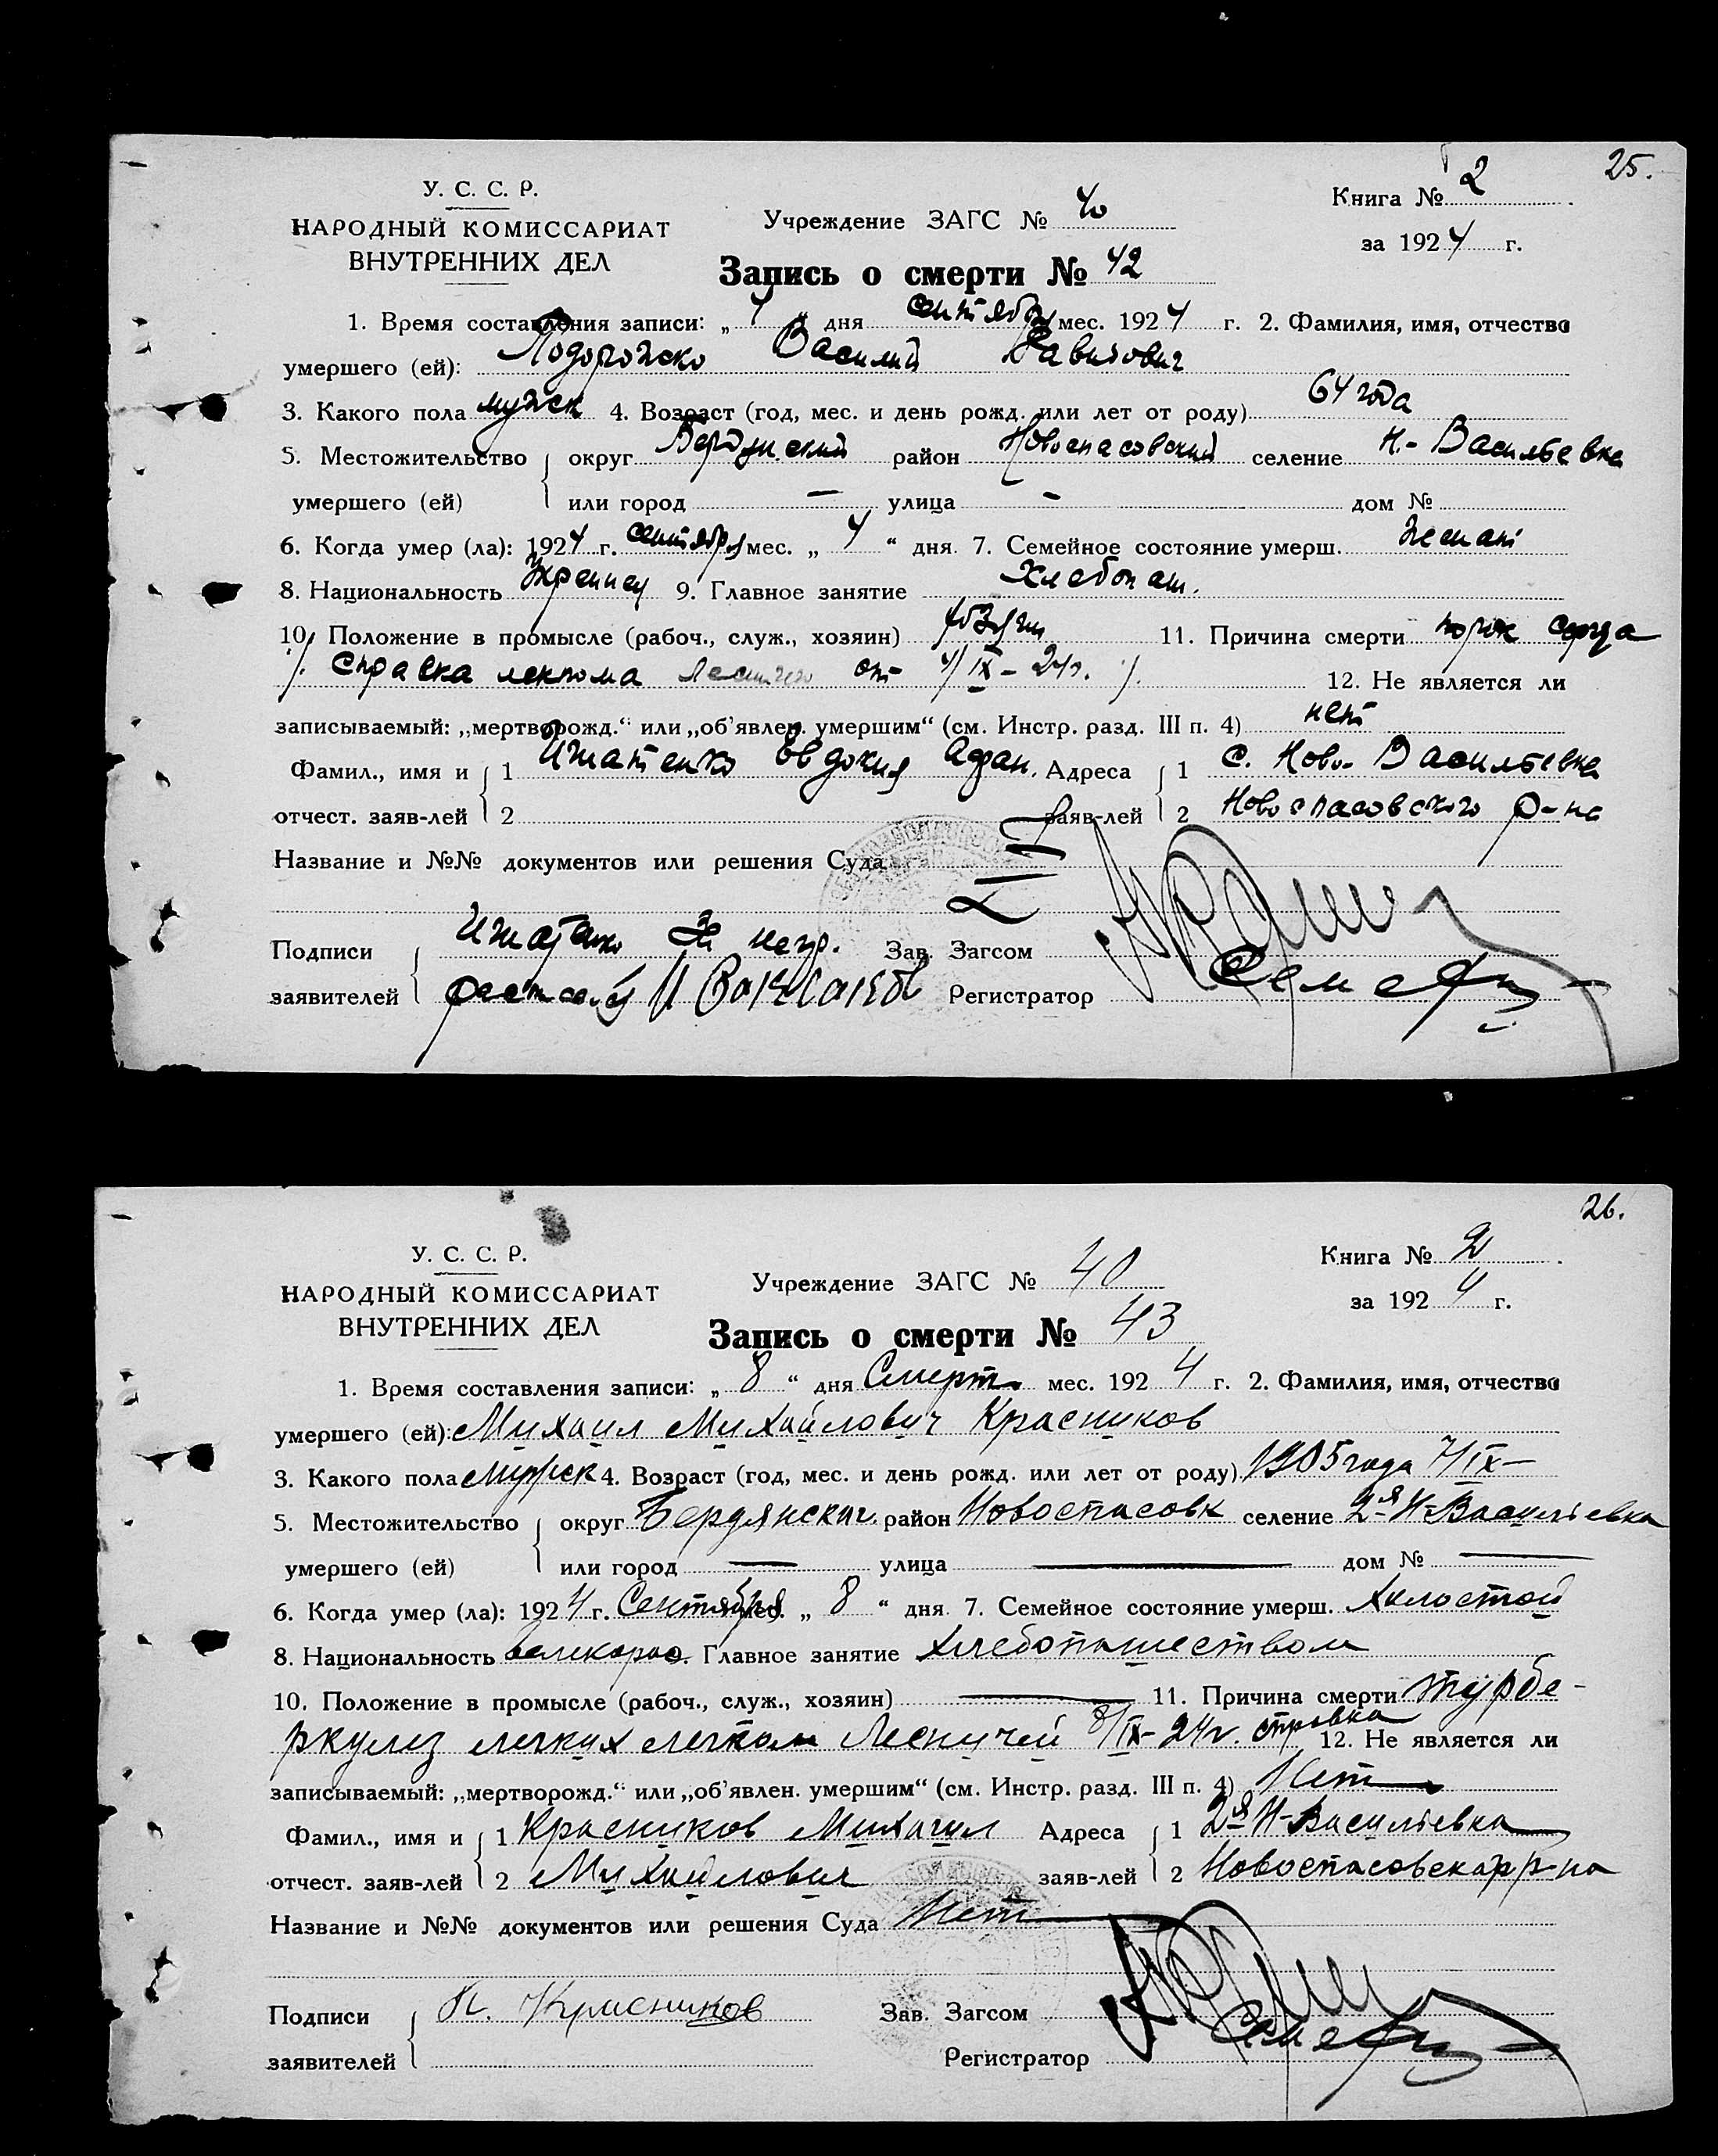 25.
У. С. С. Р.
НАРОДНЫЙ КОМИССАРИАТ
ВНУТРЕННИХ ДЕЛ
Учреждение ЗАГС № 40
Книга № 2
за 1924 г.
Запись о смерти № 42
1. Время составления записи: „ 4 “ дня сентября мес. 1924 г. 2. Фамилия, имя, отчество
умершего (ей): Подорожко Василий Савич
3. Какого пола мужск 4. Возраст (год, мес. и день рожд. или лет от роду) 64 года
5. Местожительство округ Бердянский район Новоспасовский селение Н.-Васильевка
умершего (ей) или город — улица — дом №
6. Когда умер (ла): 1924 г. сентября мес. „ 4 “ дня. 7. Семейное состояние умерш. женат
8. Национальность Украинец 9. Главное занятие Хлебопаш.
10. Положение в промысле (рабоч., служ., хозяин) хозяин 11. Причина смерти порок сердца
/. Справка лекпома от 4/IX-24г. /. 12. Не является ли
записываемый: „мертворожд.“ или „об’явлен. умершим“ (см. Инстр. разд. III п. 4) нет
Фамил., имя и 1 Игнатенко Евдокия Адреса 1 с. Ново-Васильевка
отчест. заяв-лей 2 заяв-лей 2 Новоспасовского р-на
Название и №№ документов или решения Суда
Подписи Игнатенко За негр. Зав. Загсом
заявителей Регистратор
26.
У. С. С. Р.
НАРОДНЫЙ КОМИССАРИАТ
ВНУТРЕННИХ ДЕЛ
Учреждение ЗАГС № 40
Книга № 2
за 1924 г.
Запись о смерти № 43
1. Время составления записи: „ 8 “ дня Смерть мес. 1924 г. 2. Фамилия, имя, отчество
умершего (ей): Михаил Михайлович Красников
3. Какого пола Мужск 4. Возраст (год, мес. и день рожд. или лет от роду) 1905 года 7/IX—
5. Местожительство округ Бердянский район Новоспасовк селение 2-я Н-Васильевка
умершего (ей) или город — улица — дом № —
6. Когда умер (ла): 1924 г. Сентября мес. „ 8 “ дня. 7. Семейное состояние умерш. Холостой
8. Национальность великорос. Главное занятие Хлебопашеством
10. Положение в промысле (рабоч., служ., хозяин) — 11. Причина смерти турбе-
ркулез легких лекпом Лесничей 8/IX-24г. справка 12. Не является ли
записываемый: „мертворожд.“ или „об’явлен. умершим“ (см. Инстр. разд. III п. 4) Нет
Фамил., имя и 1 Красников Михаил Адреса 1 2-я Н-Васильевка
отчест. заяв-лей 2 Михайлович заяв-лей 2 Новоспасовскаго р-на
Название и №№ документов или решения Суда Нет
Подписи Красников Зав. Загсом
заявителей Регистратор